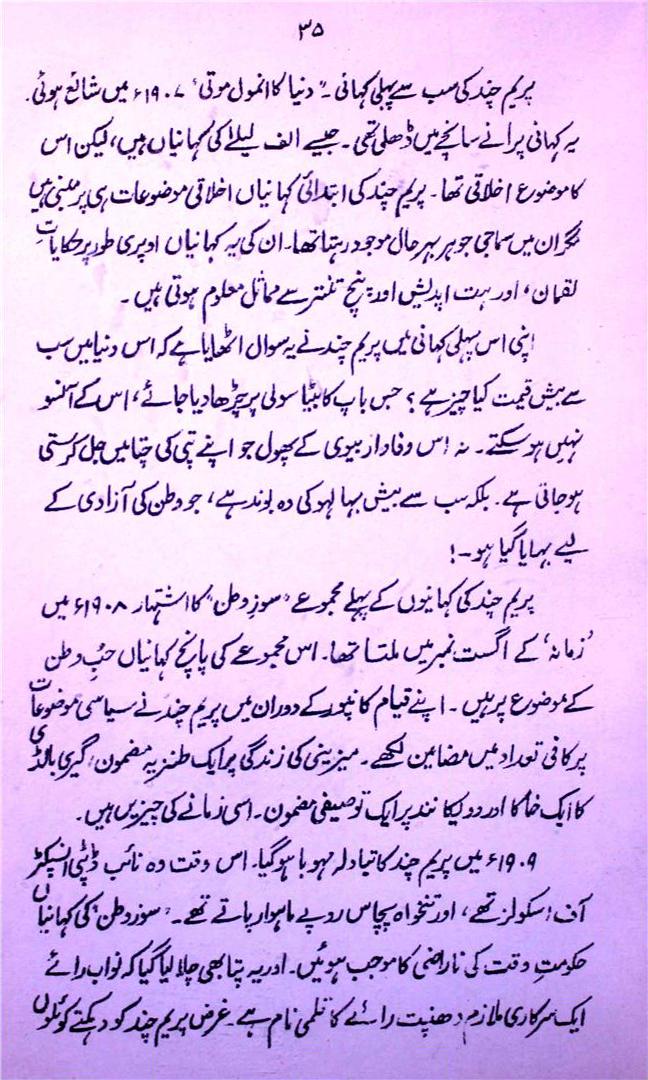 ۳۵
پریم چند کی سب سے پہلی کہانی ۔ "دنیا کا انمول موتی" ۱۹۰۷ء میں شائع ہوئی.
یہ کہانی پرانے سانچے میں ڈھلی تھی ۔ جیسے الف لیلےٰ کی کہانیاں ہیں، لیکن اس
کا موضوع اخلاقی تھا ۔ پریم چند کی ابتدائی کہانیاں اخلاقی موضوعات ہی پر مبنی ہیں
مگر ان میں سماجی جوہر بہر حال موجود رہتا تھا۔ ان کی یہ کہانیاں اوپری طور پر حکایاتِ
لقمان، اور ہت اپدیش اور پنچ تنتر سے مماثل معلوم ہوتی ہیں ۔
اپنی اس پہلی کہانی میں پریم چند نے یہ سوال اٹھایا ہے کہ اس دنیا میں سب
سے بیش قیمت کیا چیز ہے ؟ جس باپ کا بیٹا سولی پر چڑھا دیا جائے، اس کے آنسو
نہیں ہو سکتے ۔ نہ اس وفادار بیوی کے پھول جو اپنے پتی کی چتا میں جل کر ستی
ہو جاتی ہے ۔ بلکہ سب سے بیش بہا لہو کی وہ بوند ہے، جو وطن کی آزادی کے
لیے بہایا گیا ہو ۔!
پریم چند کی کہانیوں کے پہلے مجموعے "سوزِ وطن" کا اشتہار ۱۹۰۸ء میں
'زمانہ' کے اگست نمبر میں ملتا تھا۔ اس مجموعے کی پانچ کہانیاں حب وطن
کے موضوع پر ہیں ۔ اپنے قیام کانپور کے دوران میں پریم چند نے سیاسی موضوعات
پر کافی تعداد میں مضامین لکھے ۔ میزینی کی زندگی پر ایک طنزیہ مضمون، گیری بالڈی
کا ایک خاکا اور وویکانند پر ایک توصیفی مضمون ۔ اسی زمانے کی چیزیں ہیں.
۱۹۰۹ء میں پریم چند کا تبادلہ مہوبا ہو گیا. اس وقت وہ نائب ڈپٹی انسپکٹر
آف اسکولز تھے، اور تنخواہ پچاس روپے ماہوار پاتے تھے ۔ "سوز وطن" کی کہانیاں
حکومتِ وقت کی ناراضی کا موجب ہوئیں ۔ اور یہ پتا بھی چلا لیا گیا کہ نواب رائے
ایک سرکاری ملازم دھنپت رائے کا قلمی نام ہے ۔ غرض پریم چند کو دہکتے کوئلوں